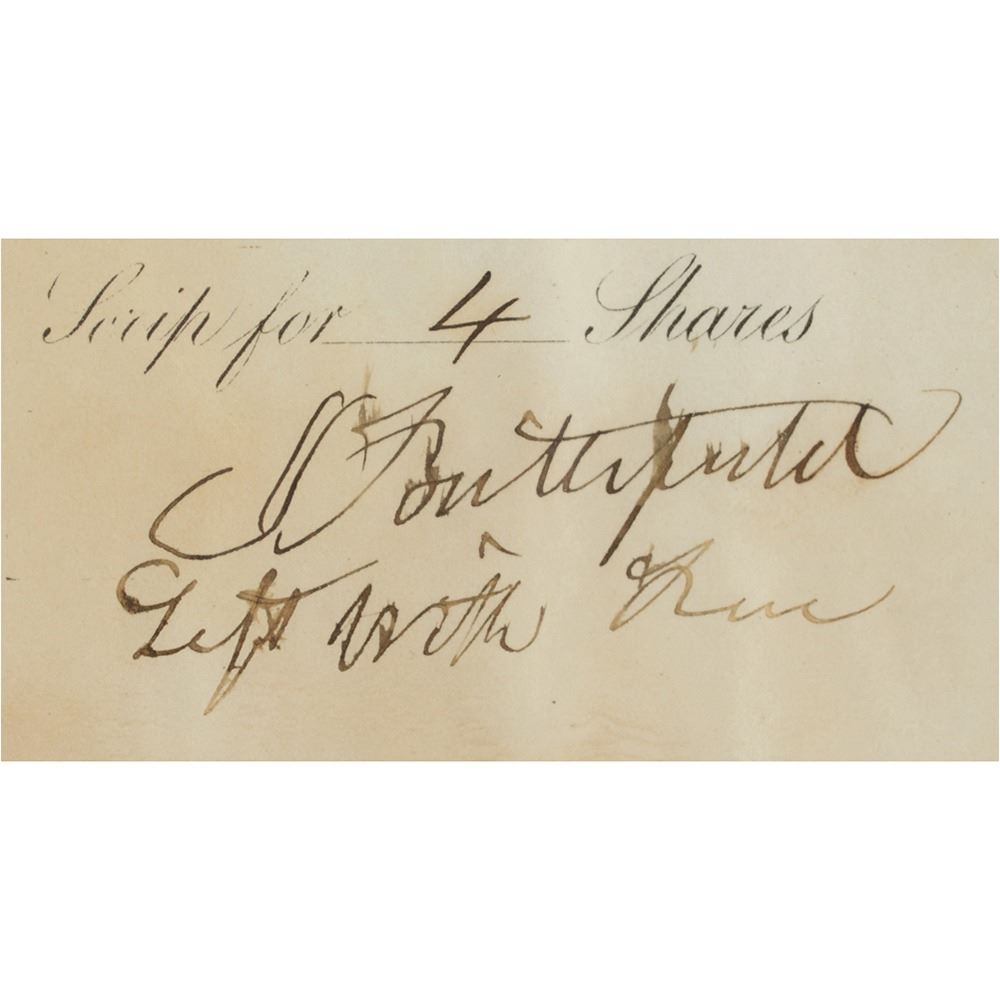 Scrip for 4 Shares
J Butterfield
Left with